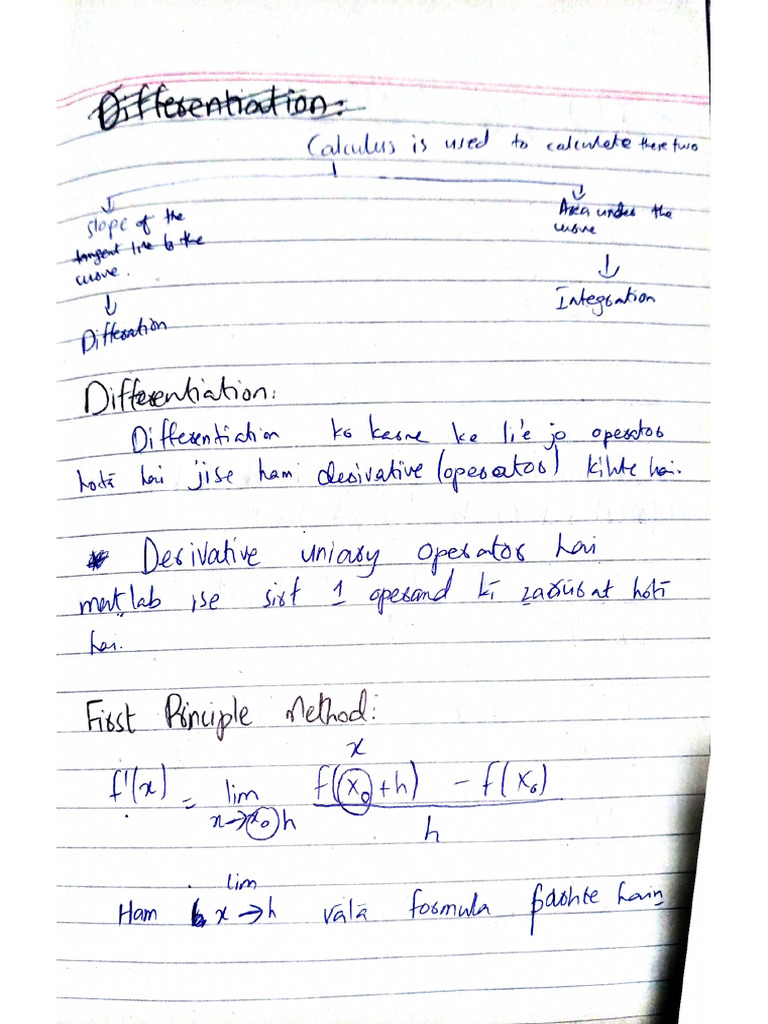 Differentiation:
Calculus is used to calculate these two
slope of the
tangent line to the
curve.
Area under the
curve
Differation
Integration
Differentiation:
Differentiation ko karne ke li'e jo operator
hotā hai jise ham derivative (operator) kihte hai.
Derivative uniary operator hai
matlab ise sirf 1 operand kī zarūrat hotī
hai.
First Principle Method:
x
f'(x) = lim f(x₀+h) - f(x₀)
x→x₀ h h
lim
Ham x→h vālā formula parhte hain